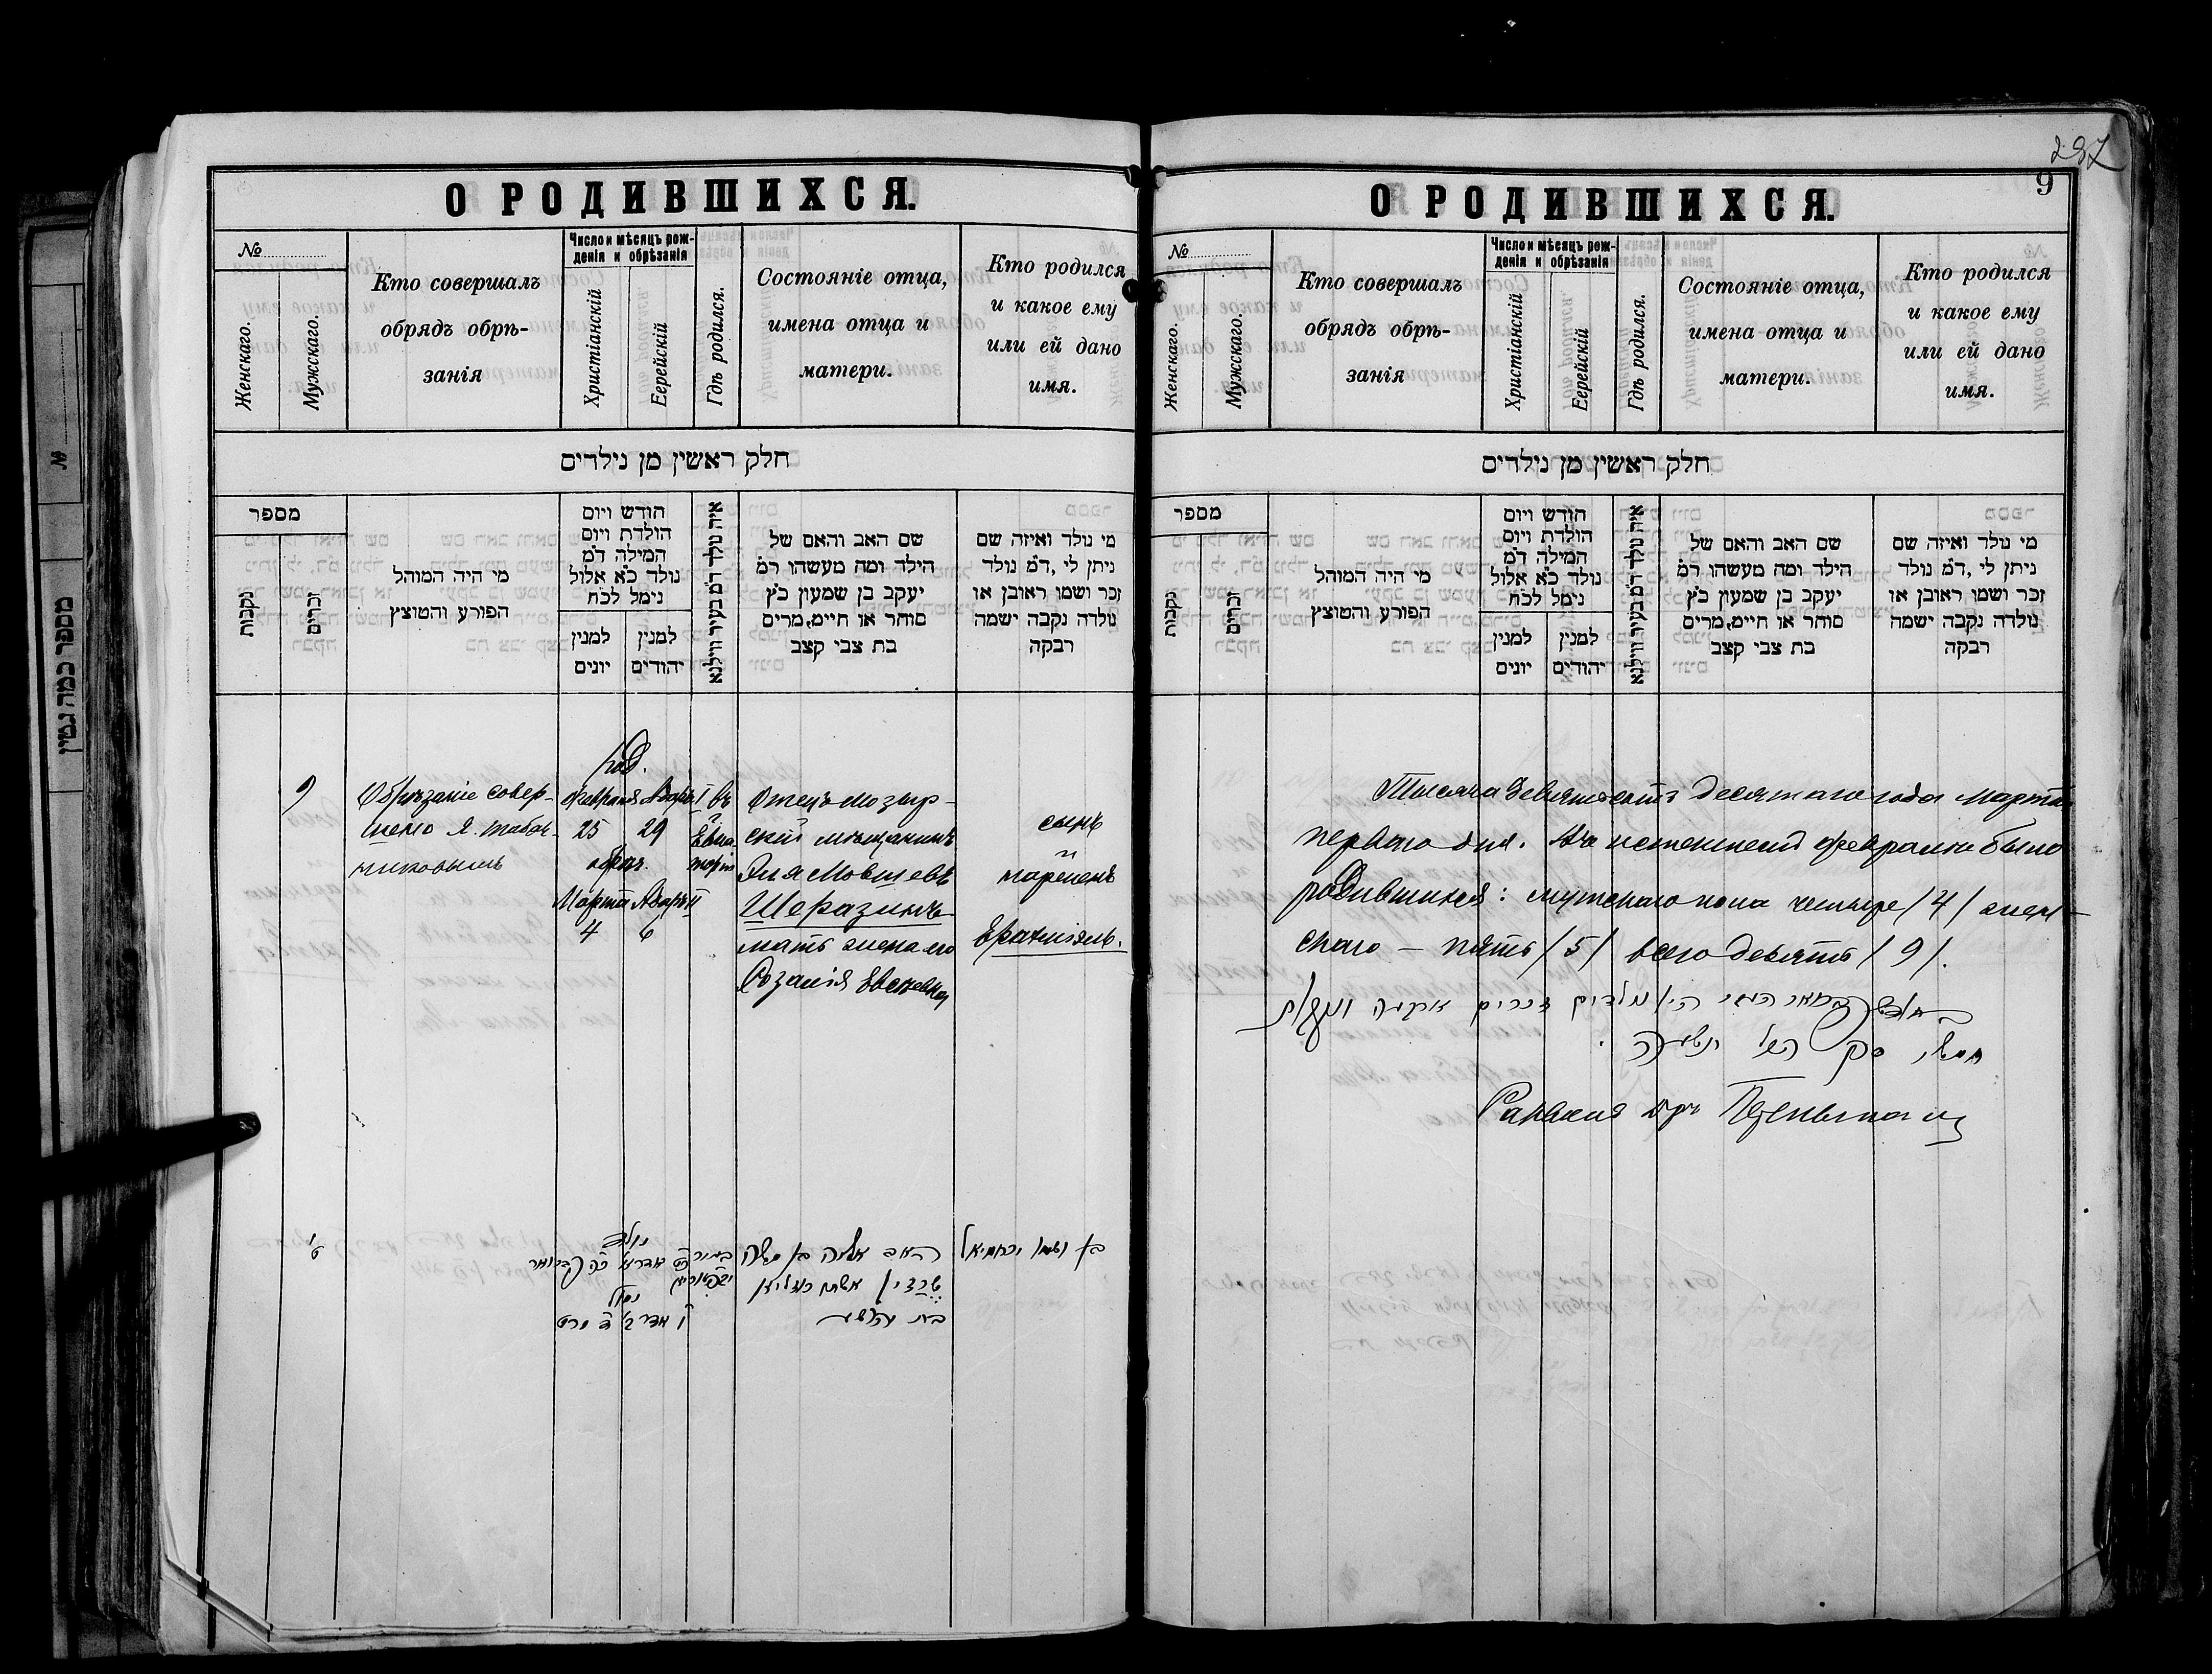 О РОДИВШИХСЯ.
№
Женскаго.
Мужскаго.
Кто совершалъ
обрядъ обрѣ-
занія
Число и мѣсяцъ рож-
денія и обрѣзанія
Христіанскій
Еерейскій
Гдѣ родился.
Состояніе отца,
имена отца и
матери.
Кто родился
и какое ему
или ей дано
имя.
חלק ראשין מן נילדים
מספר
נקבות
זכרים
מי היה המוהל
הפורע והטוצץ
הודש ויום
הולדת ויום
המילה ד״מ
נולד כ״א אלול
נימל לכ״ח
למנין
יונים
למנין
יהודים
איה נולד ד״מ בעיר ווילנא
שם האב והאם של
הילד ומה מעשהו ד״מ
יעקב בן שמעון כ״ץ
סוחר או חייט, מרים
בת צבי קצב
מי נולד ואיזה שם
ניתן לי, ד״מ נולד
זכר ושמו ראובן או
נולדה נקבה ישמה
רבקה
9
Обрѣзаніе совер-
шено Я. Табач-
никовымъ
род.
Февраля Адаръ I
25 29
обрѣз.
Марта Адаръ II
4 6
въ
г.
Евпа-
торіи
Отецъ мозыр-
скій мѣщанинъ
Эля Мовшевъ
Шеразинъ
мать жена его
Розалія Евсѣевна
сынъ
и
нареченъ
Ерахміэль.
ט
נולד
נימול
האב אליה בן משה
שרזין אשתו ראזליא
בת יהושע
בן ושמו ירחמיאל
287
9
О РОДИВШИХСЯ.
№
Женскаго.
Мужскаго.
Кто совершалъ
обрядъ обрѣ-
занія
Число и мѣсяцъ рож-
денія и обрѣзанія
Христіанскій
Еерейскій
Гдѣ родился.
Состояніе отца,
имена отца и
матери.
Кто родился
и какое ему
или ей дано
имя.
חלק ראשין מן נילדים
מספר
נקבות
זכרים
מי היה המוהל
הפורע והטוצץ
הודש ויום
הולדת ויום
המילה ד״מ
נולד כ״א אלול
נימל לכ״ח
למנין
יונים
למנין
יהודים
איה נולד ד״מ בעיר ווילנא
שם האב והאם של
הילד ומה מעשהו ד״מ
יעקב בן שמעון כ״ץ
סוחר או חייט, מרים
בת צבי קצב
מי נולד ואיזה שם
ניתן לי, ד״מ נולד
זכר ושמו ראובן או
נולדה נקבה ישמה
רבקה
Тысяча девятьсотъ десятаго года марта
перваго дня. Въ истекшемъ февралѣ было
родившихся: мужскаго пола четыре /4/ жен-
скаго – пять /5/ всего девять /9/.
בחודש פברואר העבר היו נולדים זכרים ארבעה ונקבות
חמש, סך הכל תשעה.
Раввинъ
מספר כמה גטין
№